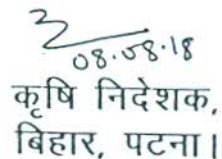 08.08.18
कृषि निदेशक,
बिहार, पटना।